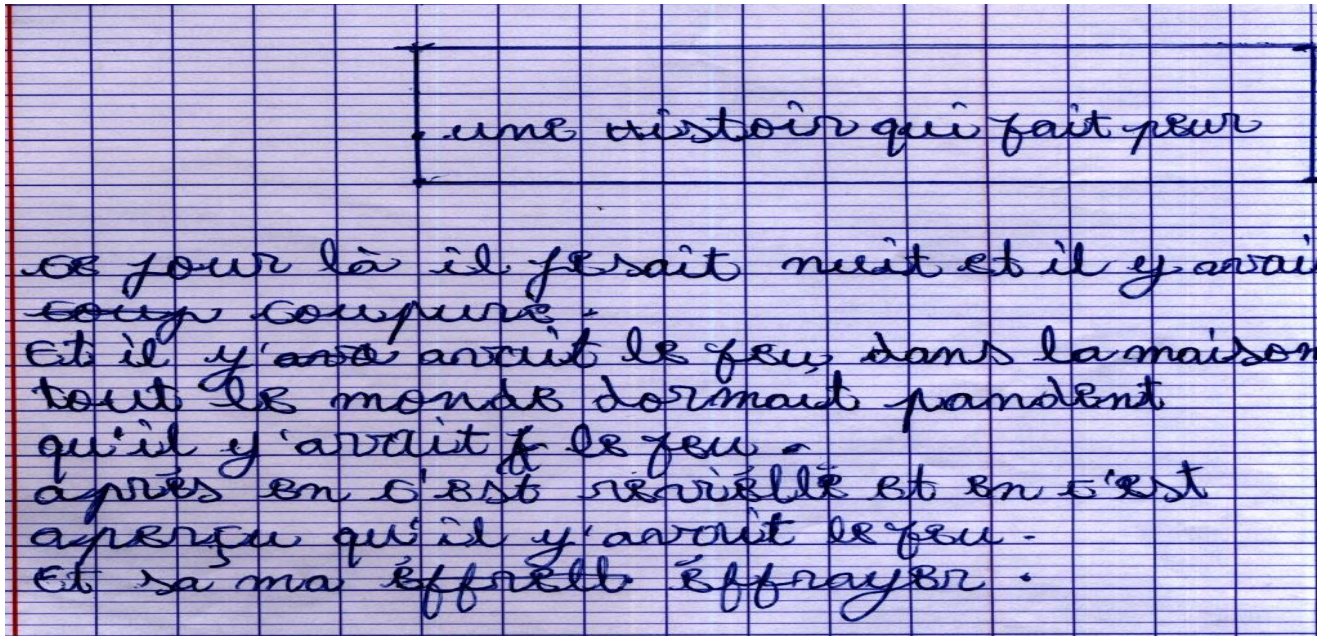 une histoir qui fait peur
ce jour là il fesait nuit et il y avai
coup coupure.
Et il y'ava avait le feu, dans la maison
tout le monde dormait pandent
qu'il y'avait le feu.
après en c'est réviéllé et en c'est
aperçu qu'il y'avait le feu.
Et sa ma éffrell éffrayer.